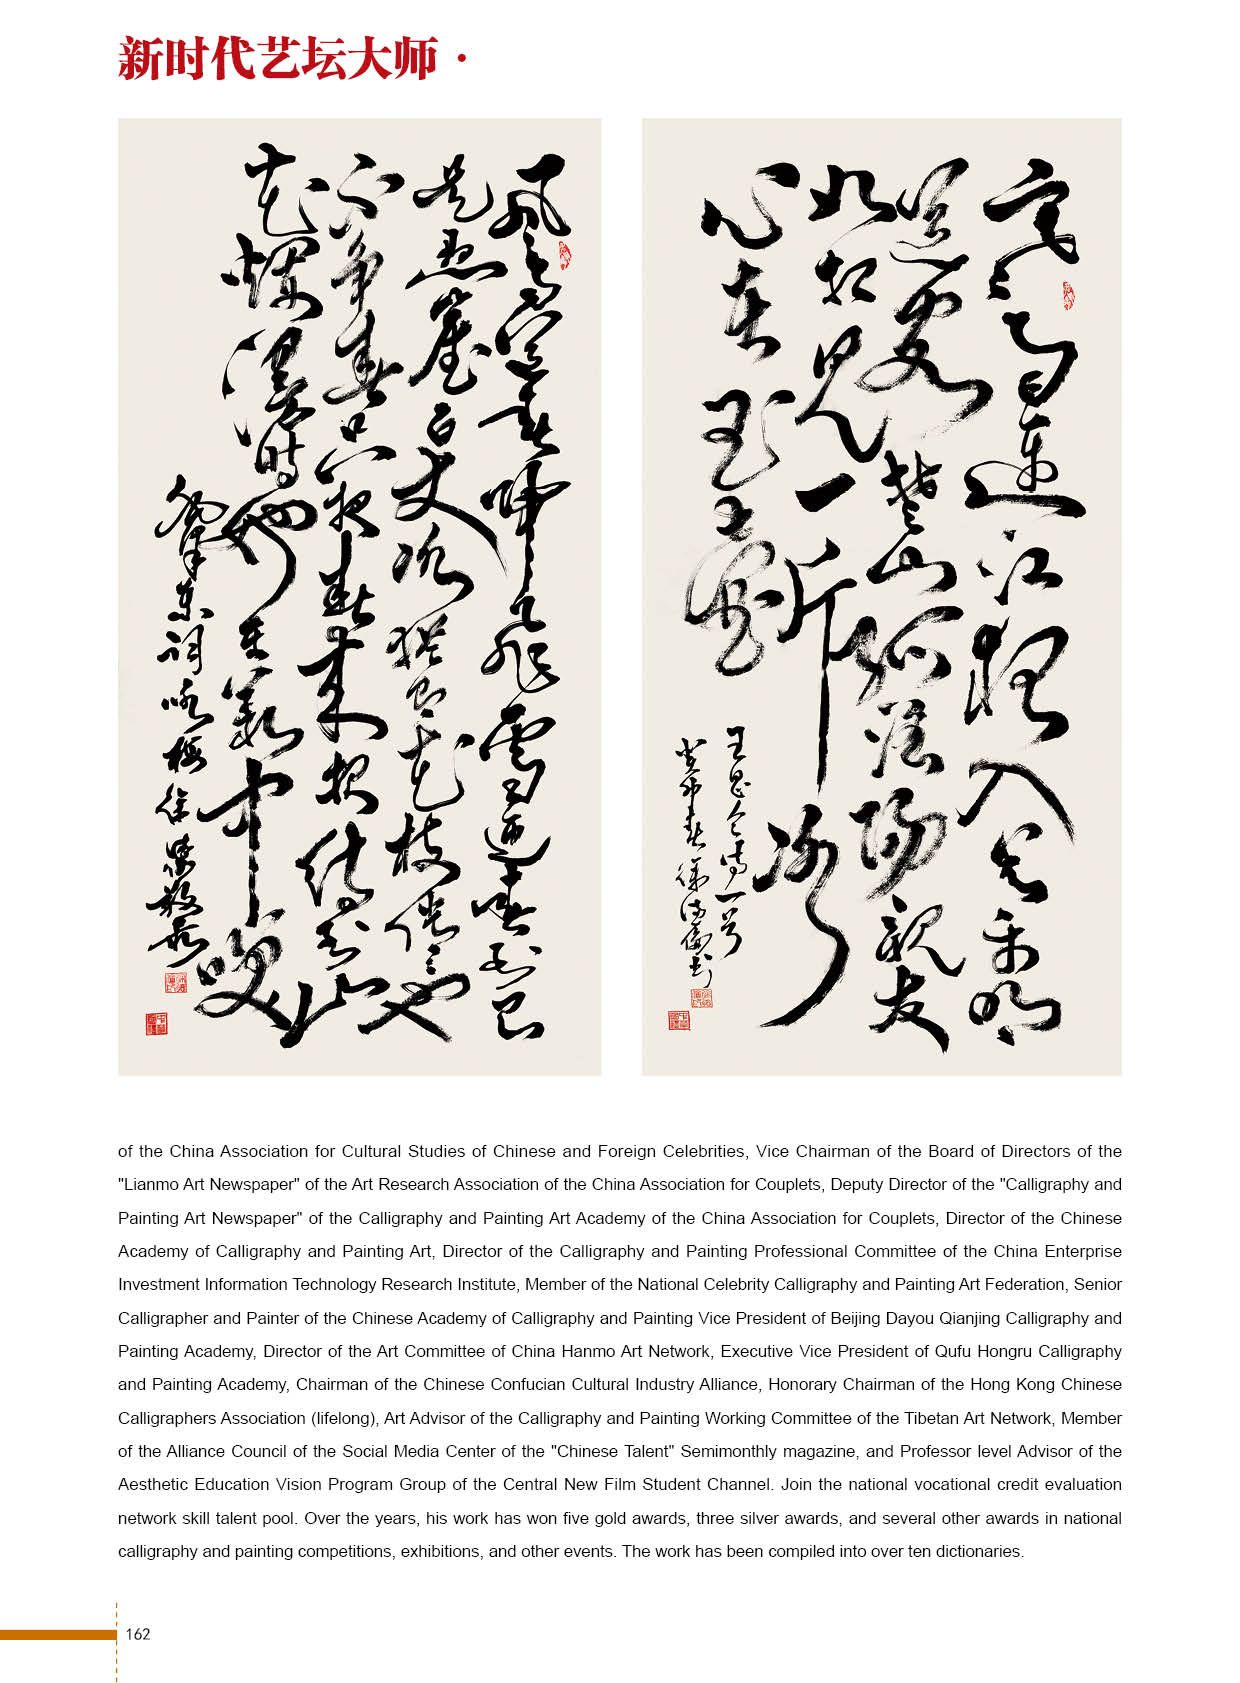 新时代艺坛大师 ·
风雨送春归飞雪迎春到已
是悬崖百丈冰犹有花枝俏俏也
不争春只把春来报待到山
花烂漫时她在丛中笑
东词咏梅徐
寒雨连江夜入吴平明
送客楚山孤洛阳亲友
如相见一片冰
心在玉壶
王昌令诗一首
癸卯春徐书
of the China Association for Cultural Studies of Chinese and Foreign Celebrities, Vice Chairman of the Board of Directors of the
"Lianmo Art Newspaper" of the Art Research Association of the China Association for Couplets, Deputy Director of the "Calligraphy and
Painting Art Newspaper" of the Calligraphy and Painting Art Academy of the China Association for Couplets, Director of the Chinese
Academy of Calligraphy and Painting Art, Director of the Calligraphy and Painting Professional Committee of the China Enterprise
Investment Information Technology Research Institute, Member of the National Celebrity Calligraphy and Painting Art Federation, Senior
Calligrapher and Painter of the Chinese Academy of Calligraphy and Painting Vice President of Beijing Dayou Qianjing Calligraphy and
Painting Academy, Director of the Art Committee of China Hanmo Art Network, Executive Vice President of Qufu Hongru Calligraphy
and Painting Academy, Chairman of the Chinese Confucian Cultural Industry Alliance, Honorary Chairman of the Hong Kong Chinese
Calligraphers Association (lifelong), Art Advisor of the Calligraphy and Painting Working Committee of the Tibetan Art Network, Member
of the Alliance Council of the Social Media Center of the "Chinese Talent" Semimonthly magazine, and Professor level Advisor of the
Aesthetic Education Vision Program Group of the Central New Film Student Channel. Join the national vocational credit evaluation
network skill talent pool. Over the years, his work has won five gold awards, three silver awards, and several other awards in national
calligraphy and painting competitions, exhibitions, and other events. The work has been compiled into over ten dictionaries.
162